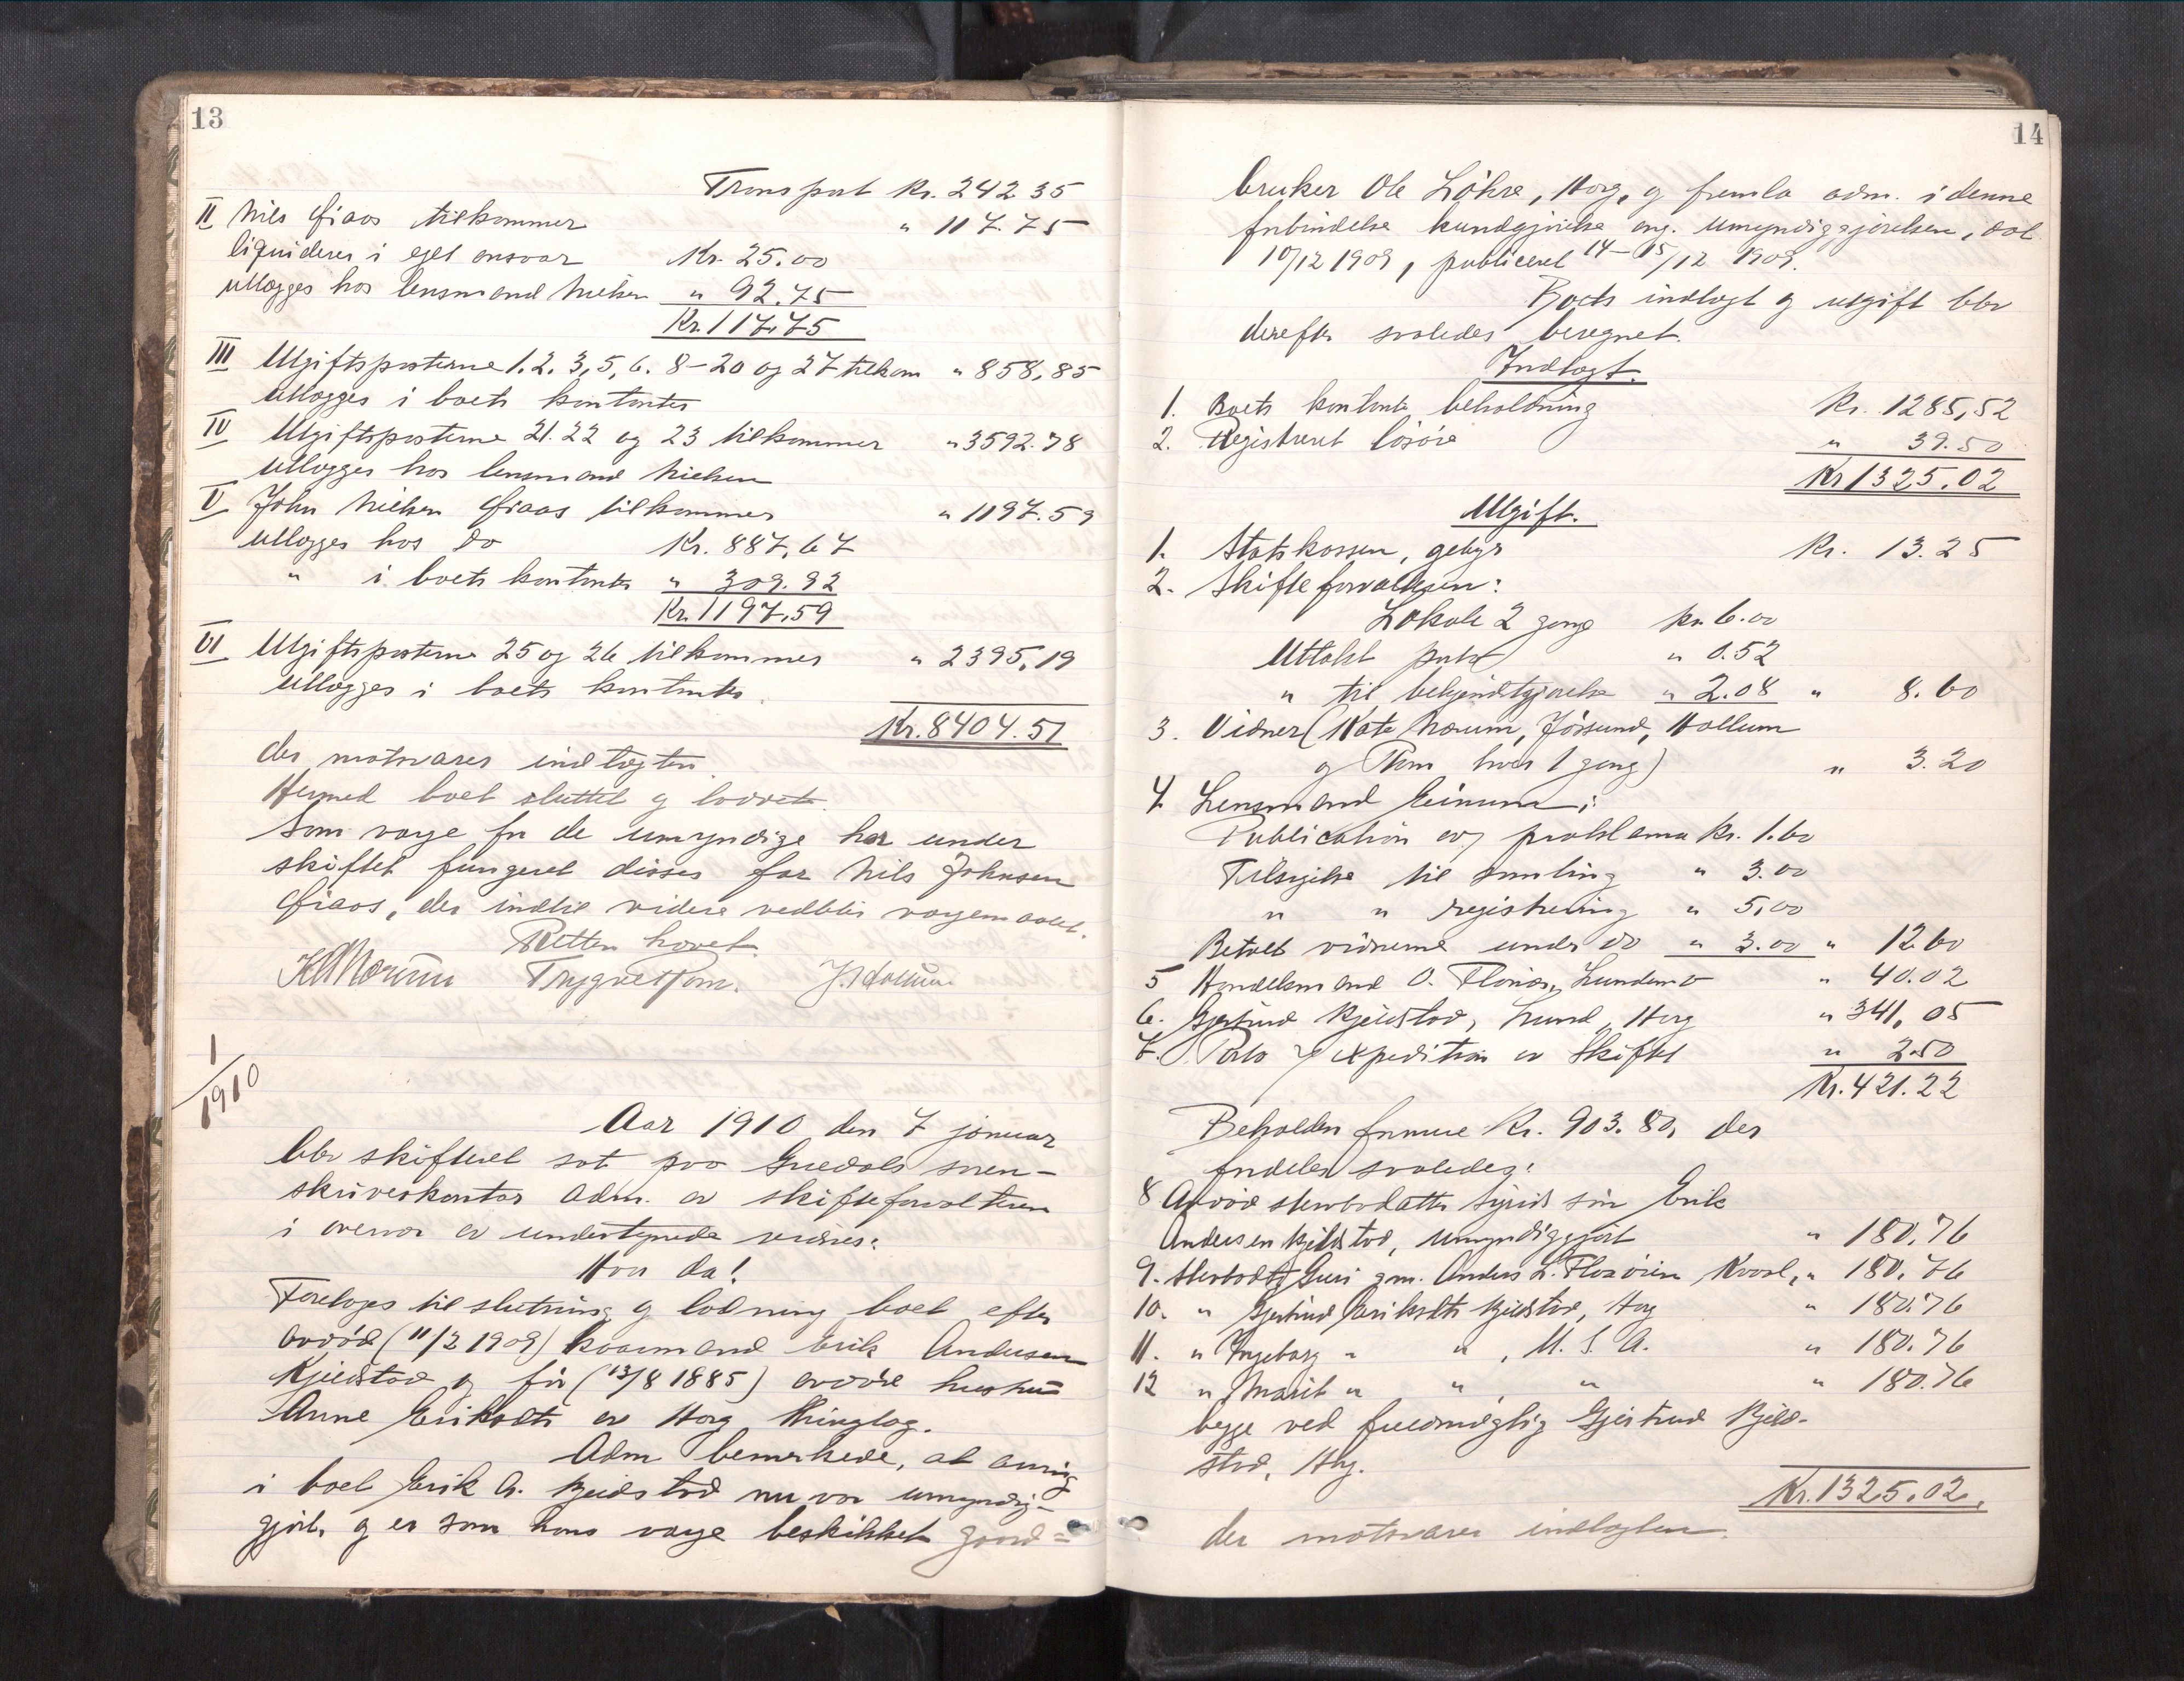 13
Transport Kr. 242.35
II Nils Fiaas tilkommer " 117.75
liquideres i eget ansvar Kr. 25.00
utlægges hos lensmand Nielsen " 92.75
Kr. 117.75
III Utgiftsposterne 1. 2. 3, 5, 6. 8-20 og 27 tilkom " 858,85
utlægges i boets kontanter
IV Utgiftsposterne 21. 22 og 23 tilkommer " 3592.78
utlægges hos lensmand Nielsen
V John Nielsen Fiaas tilkommer " 1197.59
utlægges hos do Kr. 887,67
" i boets kontanter " 309.92
Kr. 1197,59
VI Utgiftsposterne 25 og 26 tilkommer " 2395,19
utlægges i boets kontanter.
Kr. 8404.51
der motsvarer indtægten.
Hermed boet sluttet og loddet.
Som værge for de umyndige har under
skiftet fungeret disses far Nils Johnsen
Fiaas, der indtil videre vedblir værgemaalet.
Retten hævet.
K Mærum Trygve Thom. J. Hollum
1/1910
Aar 1910 den 7 januar
blev skifteret sat paa Guldals soren-
skriverkontor adm. av skifteforvalteren
i overvær av undertegnede vidner:
Hvor da!
Foretoges til slutning og lodning boet efter
avdød (11/2 1909) kaarmand Erik Andersen
Kjeldstad og før (13/8 1885) avdøde hustru
Anne Eriksdtr av Horg thinglag.
Adm bemerkede, at arving
i boet Erik A. Kjeldstad nu var umyndig-
gjort, og er som hans værge beskikket gaard=
14
bruker Ole Løhre, Horg, og fremla adm. i denne
forbindelse kundgjørelse ang. umyndiggjørelsen, dat
10/12 1909, publiceret 14-15/12 1909.
Boets indtægt og utgift blev
derefter saaledes beregnet.
Indtægt.
1. Boets kontante beholdning Kr. 1285,52
2. Registreret løsøre " 39.50
Kr 1325.02
Utgift.
1. Statskassen, gebyr Kr. 13.25
2. Skifteforvalteren:
Lokale 2 gange Kr. 6.00
Uttalt porto " 0.52
" til bekjendtgjørelse " 2.08 " 8.60
3. Vidner (Kate Mærum, Jøssund, Hollum
og Thom hver 1 gang) " 3.20
4. Lensmand Einum:
Publication av proklama Kr. 1.60
Tilsigelse til samling " 3.00
" " registrering " 5,00
Betalt vidnerne under do " 3.00 " 12.60
5 Handelsmand O. Flønes, Lundemo " 40.02
6. Gjertrud Kjeldstad, Lund, Horg " 341,05
7. Porto og expedition av Skiftet " 2.50
Kr. 421.22
Beholden formue Kr. 903.80, der
fordeles saaledes:
8 Avdød stervbodatter Sigrids søn Erik
Andersen Kjeldstad, umyndiggjort " 180,76
9. Stervbodtr Guri gm. Anders L. Flaaøien Kvaal, " 180,76
10. " Gjertrud Eriksdtr Kjeldstad, Horg " 180.76
11. " Ingeborg " " , U. S. A. " 180.76
12 " Marit " " , " " 180.76
begge ved fuldmægtig Gjertrud Kjeld-
stad, Horg.
Kr. 1325.02,
der motsvarer indtægten.